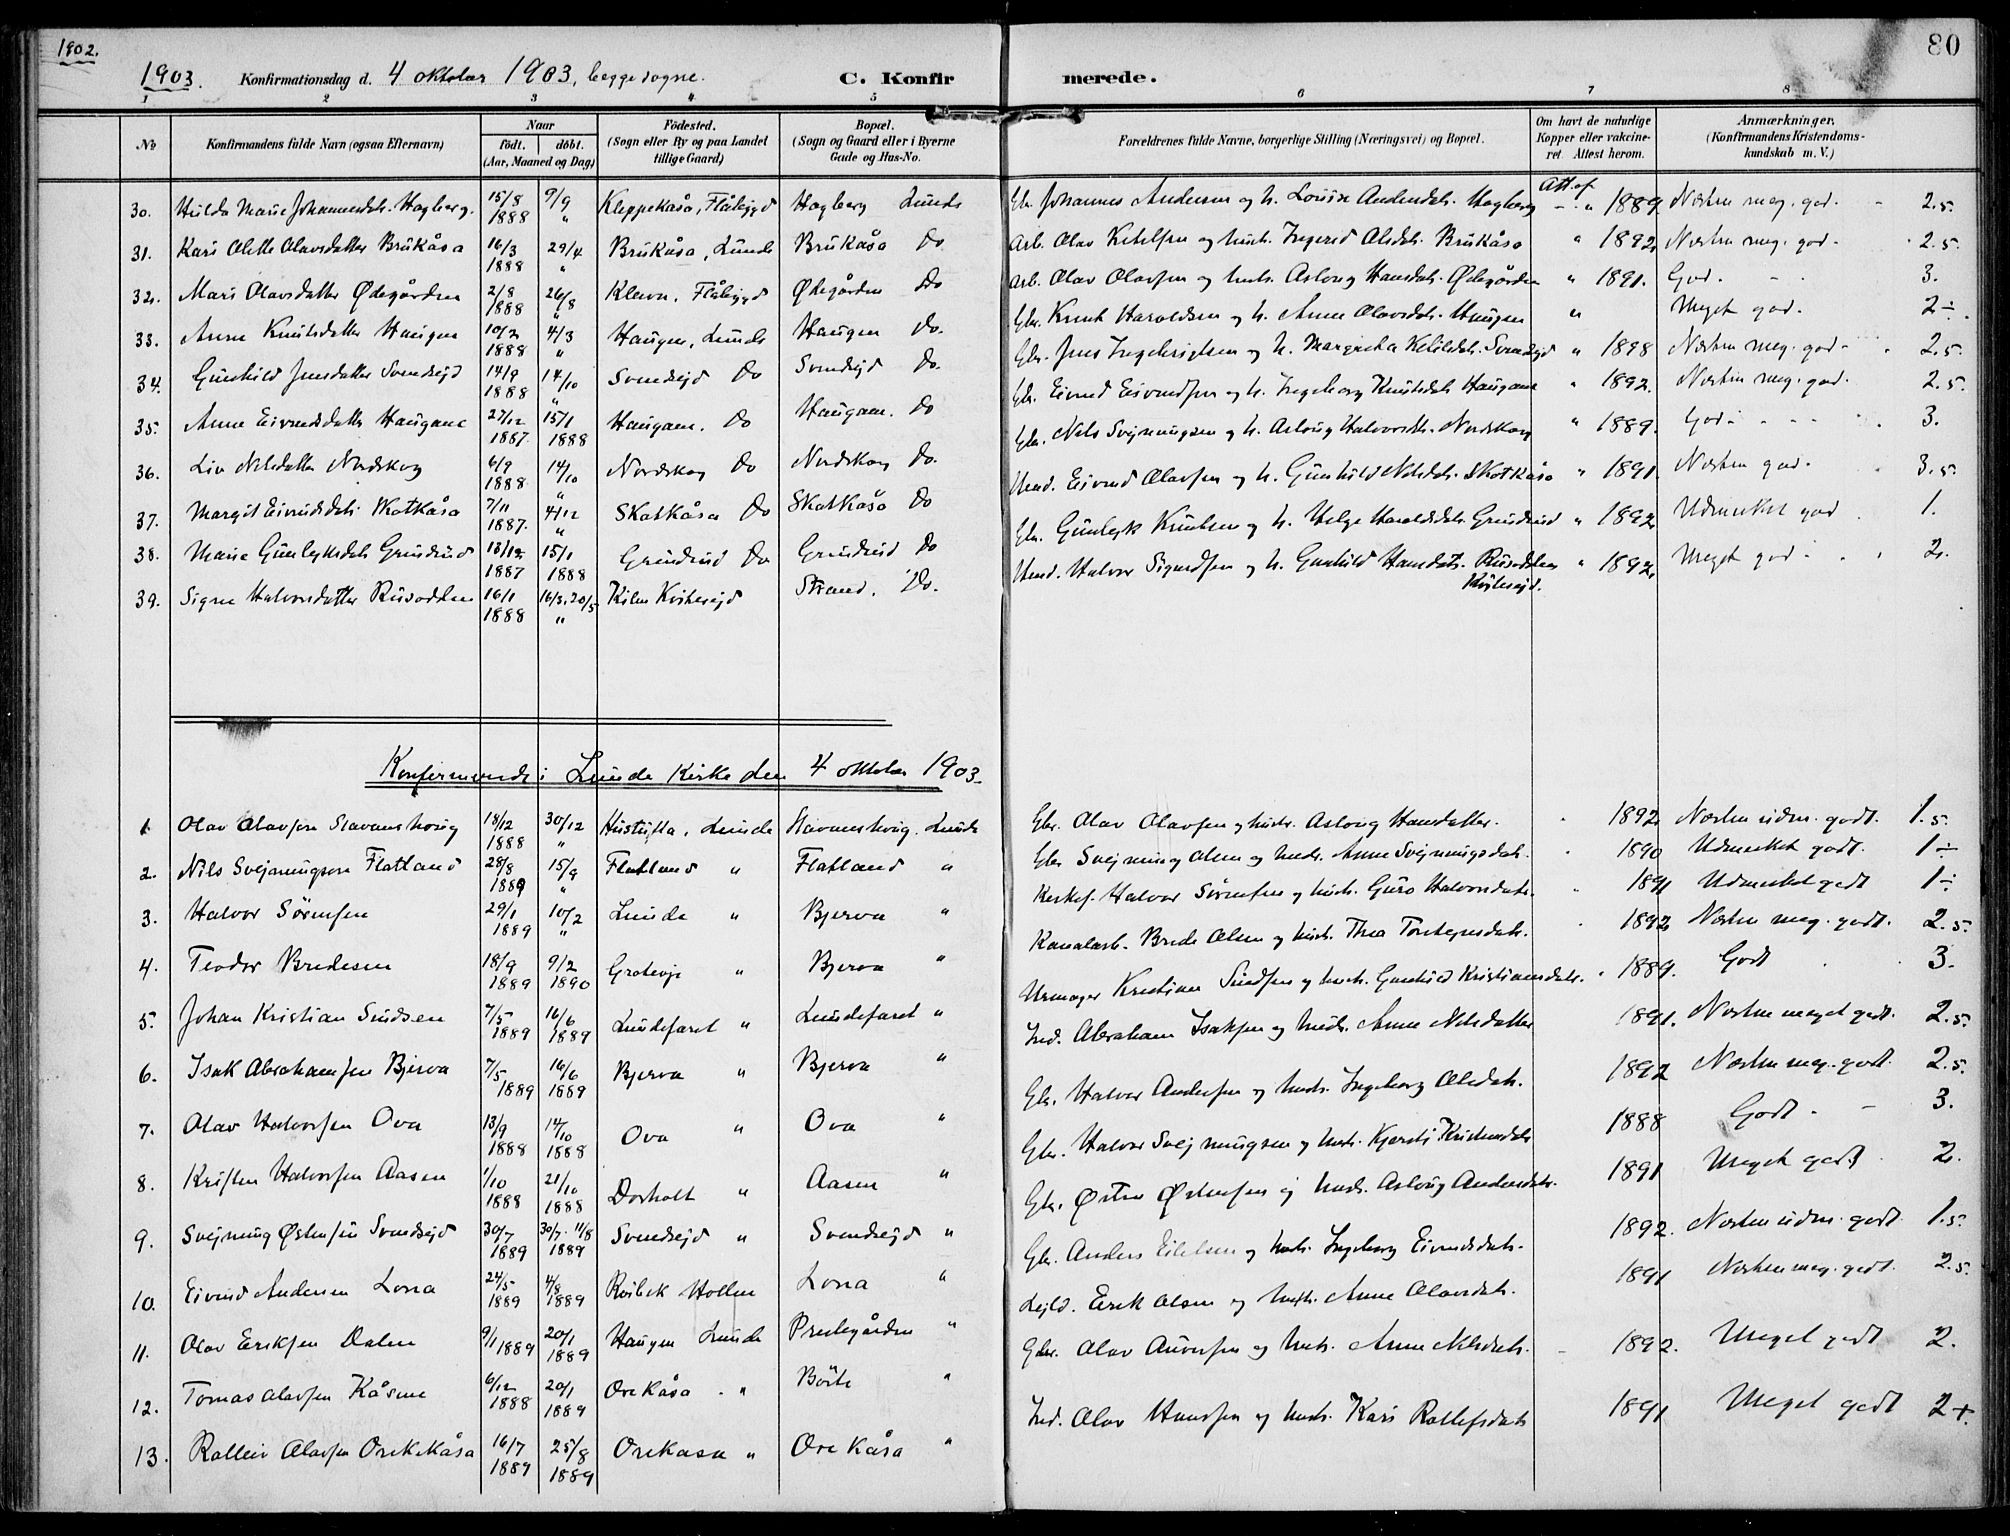 1902.
80
1903. Konfirmationsdag d. 4 oktober 1903, begge sogne. C. Konfirmerede.
1 2 3 4 5 6 7 8
No Konfirmandens fulde Navn (ogsaa Efternavn) Naar födt. döbt. (Aar, Maaned og Dag) Födested. (Sogn eller By og paa Landet tillige Gaard) Bopæl. (Sogn og Gaard eller i Byerne Gade og Hus-No. Forældrenes fulde Navne, borgerlige Stilling (Næringsvei) og Bopæl. Om havt de naturlige Kopper eller vakcineret. Attest herom. Anmærkninger. (Konfirmandens Kristendomskundskab m. V.)
30. Hulda Marie Johannesdtr. Hagberg. 15/8 1888 9/9 " Kleppekåsa, Flåbygd Hagberg Lunde Gbr. Johannes Andersen og h. Louise Andersdtr. Hagberg Att. af " 1889 Næsten meg. god. 2.5.
31. Kari Olette Olavsdatter Brukåsa 16/3 1888 29/4 " Brukåsa, Lunde Brukåsa Do. Arb. Olav Ketelsen og hust. Ingerid Olsdtr. Brukåsa " 1892. Næsten meg. god. 2.5.
32. Mari Olavsdatter Ødegården 2/8 1888 26/8 " Kleivn, Flåbygd Ødegården Do Arb. Olav Olavsen og hust. Asloug Hansdtr. Ødegården " 1891. God. 3.
33. Anne Knutsdatter Haugen 10/2 1888 4/3 " Haugen, Lunde Haugen Do. Gbr. Knut Haroldsen og h. Anne Olavsdtr. Haugen " Meget god. 2÷.
34. Gunhild Jensdatter Svendsejd 14/9 1888 14/10 " Svendsejd Do Svendsejd Do. Gbr. Jens Ingebrigtsen og h. Margretha Ketilsdtr. Svendsejd " 1898 Næsten meg. god. 2.5.
35. Anne Eivindsdatter Haugane 27/12 1887. 15/1 1888 Haugane. Do Haugane. Do Gbr. Eivind Eivindsen og h. Ingeborg Knutsdtr. Haugane " 1892. Næsten meg. god. 2.5.
36. Liv Nilsdatter Nordskog 6/9 1888 14/10 " Nordskog Do Nordskog Do. Gbr. Nils Svejnungsen og h. Asloug Halvorsdtr. Nordskog " 1889. God. 3.
37. Margit Eivindsdtr. Skotkåsa 7/11 1887. 4/12 " Skotkåsa Do Skotkåsa Do Hmd. Eivind Olavsen og h. Gunhild Nilsdtr. Skotkåsa " 1891. Næsten god. 3.5.
38. Marie Gunleyksdtr. Grindrud 13/12 1887 15/1 1888 Grindrud Do Grindrud Do Gbr. Gunleyk Knutsen og h. Helge Haroldsdtr. Grindrud " 1892. Udmerket god 1.
39. Signe Halvorsdatter Rusodden 16/1 1888 16/3, 20/5 " Kilen Kvitesejd Strand. Do. Hmd. Halvor Sigurdsen og h. Gunhild Hansdatr. Rusodden Kvitesejd. " 1892. Meget god 2.
Konfirmerede i Lunde Kirke den 4 oktober 1903.
1. Olav Olavsen Slavanshoug 18/12 1888 30/12 " Hustufta, Lunde Slavanshoug, Lunde Gbr. Olav Olavsen og hustr. Asloug Hansdatter. 1892. Næsten udm. godt. 1.5.
2. Nils Svejnungson Flatland 28/8 1889 15/9 " Flatland " Flatland " Gbr. Svejnung Olsen og hustr. Anne Svejnungsdatr. 1890 Udmerket godt. 1÷
3. Halvor Sørensen 29/1 1889 10/2 " Lunde " Bjerva " Halvor Sørensen og hustr. Guro Halvorsdatr. 1891 Udmerket godt 1÷
4. Teodor Bredesen 18/9 1889 9/2 1890 Grotevje " Bjerva " Kanalarb. Brede Olsen og hustr. Thea Torstejnsdatr. 1892 Næsten meg. godt. 2.5.
5. Johan Kristian Sundsen 7/5 1889 16/6 1889 Lundefaret " Lundefaret " Urmager Kristian Sundsen og hustr. Gunhild Kristiansdatr. 1889. Godt 3.
6. Isak Abrahamsen Bjerva 7/5 1889 16/6 1889 Bjerva " Bjerva " Ind. Abraham Isaksen og hustr. Anne Nilsdatter 1891. Næsten meget godt. 2.5.
7. Olav Halvorsen Ova 13/9 1888 14/10 1888 Ova " Ova " Gbr. Halvor Andersen og hustr. Ingeborg Olsdatr. 1892 Næsten meg. godt. 2.5.
8. Kristen Halvorsen Aasen 1/10 1888 21/10 1888 Dorholt " Aasen " Gbr. Halvor Svejnungsen og hustr. Kjersti Kristensdatr. 1888 Godt. 3.
9. Svejnung Østensen Svendsejd 30/7 1889 30/7. 11/8 1889 Svendsejd " Svendsejd " Gbr. Østen Østensen og hustr. Asloug Andersdatr. 1891 Meget godt 2.
10. Eivind Andersen Lona 24/5 1889 4/8 1889 Roibek Hollen Lona " Gbr. Anders Eilefsen og hustr. Ingeborg Eivindsdatr. 1892. Næsten udm. godt 1.5.
11. Olav Eriksen Dalen 9/1 1889 20/1 1889 Haugen Lunde Prestegården " Lejld. Erik Olsen og hustr. Anne Olavsdatr. 1891 Næsten meg. godt. 2.5.
12. Tomas Olavsen Kåsene 6/12 1888 20/1 1889 Orekåsa " Börte " Gbr. Olav Auversen og hustr. Anne Nilsdatr. 1892. Meget godt 2.
13. Rolleiv Olavsen Orekåsa 16/7 1889 25/8 1889 Orekasa " Orekåsa " Ind. Olav Hansen og hustr. Kari Rollefsdatr 1891 Meget godt 2+.